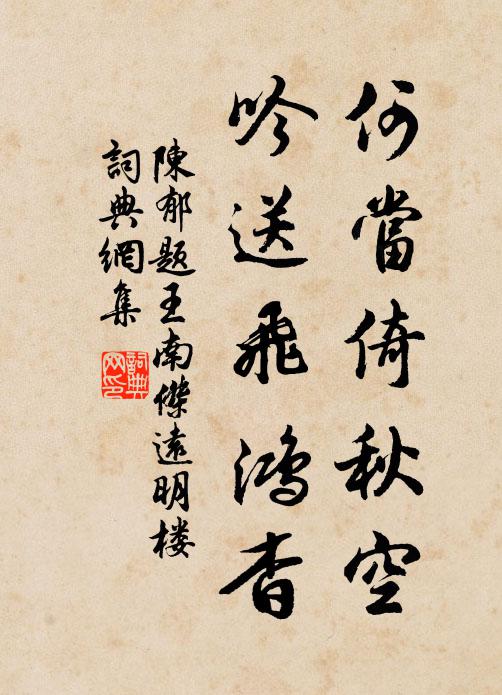 何當倚秋空
吟送飛鴻杳
陳郁題王南傑遠明楼
詞典網集
詞典
网印